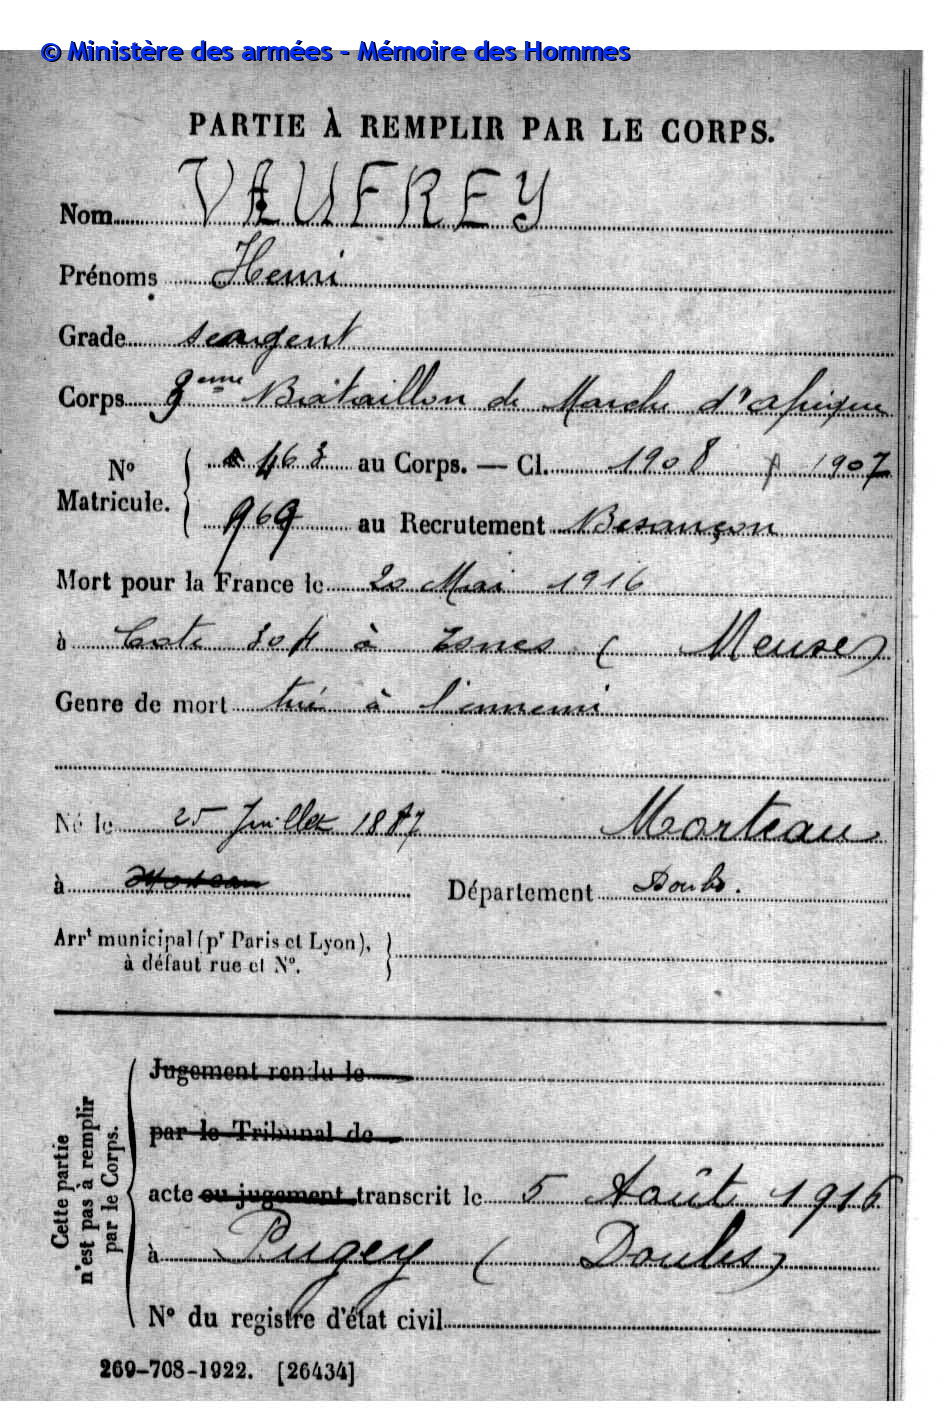 © Ministère des armées - Mémoire des Hommes
PARTIE À REMPLIR PAR LE CORPS.
Nom VAUFREY
Prénoms Henri
Grade sergent
Corps 3eme Bataillon de Marche d'Afrique
No Matricule. 463 au Corps. — Cl. 1908 1907
969 au Recrutement Besançon
Mort pour la France le 20 Mai 1916
à Cote 304 à Esnes (Meuse)
Genre de mort tué à l'ennemi
Né le 25 Juillet 1887 Morteau
à Département Doubs.
Arrt municipal (pr Paris et Lyon), à défaut rue et No.
Cette partie n'est pas à remplir par le Corps.
Jugement rendu le
par le Tribunal de
acte ou jugement transcrit le 5 Août 1916
à Pugey (Doubs)
No du registre d'état civil
269-708-1922. [26434]